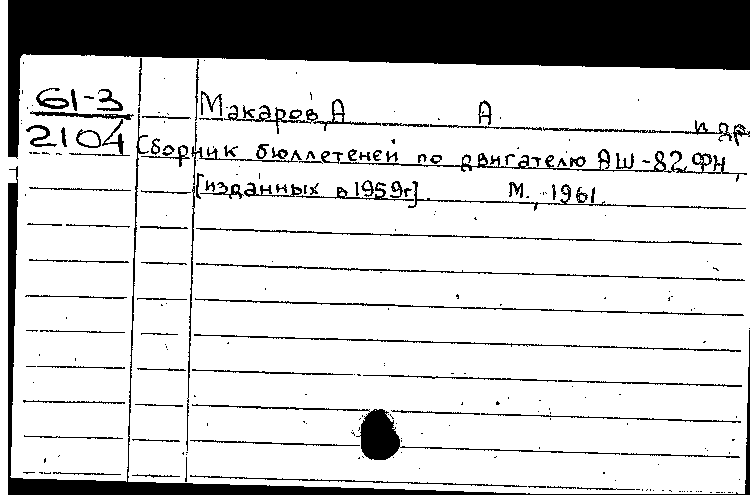 61-3
2104
Макаров, А А и др
Сборник бюллетеней по двигателю АШ-82 ФН,
[изданных в 1959г]. М., 1961.